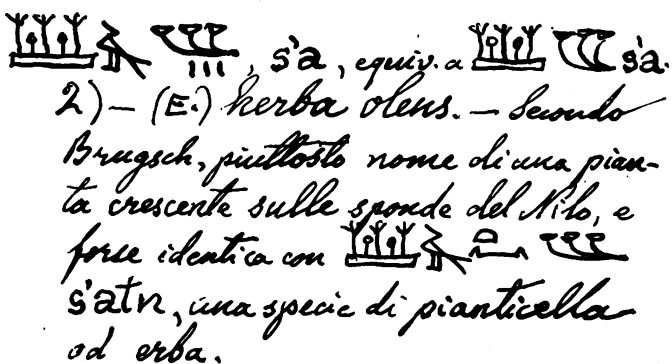 𓆷 , s'a, equiv. a 𓆷 s'a.
2) — (E.) herba olens. — Secondo
Brugsch, piuttosto nome di una pian-
ta crescente sulle sponde del Nilo, e
forse identica con 𓆷
s'atn, una specie di pianticella
od erba.